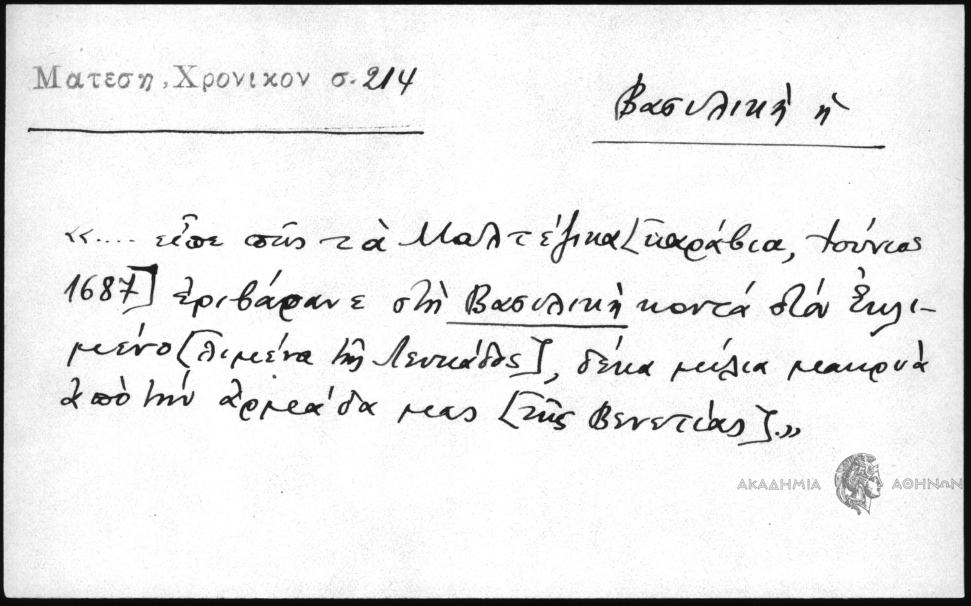 Ματεση, Χρονικον σ. 214
Βασιλικὴ ἡ
«.... εἶπε πῶς τὰ Μαλτέζικα [καράβια, Ἰούνιος
1687] ἐριβάρανε στὴ Βασιλικὴ κοντά στόν Ἐκλι-
μένο [λιμένα τῆς Λευκάδος], δέκα μίλια μακρυὰ
ἀπὸ τὴν ἀρμάδα μας [τῆς Βενετίας].»
ΑΚΑΔΗΜΙΑ ΑΘΗΝΩΝ